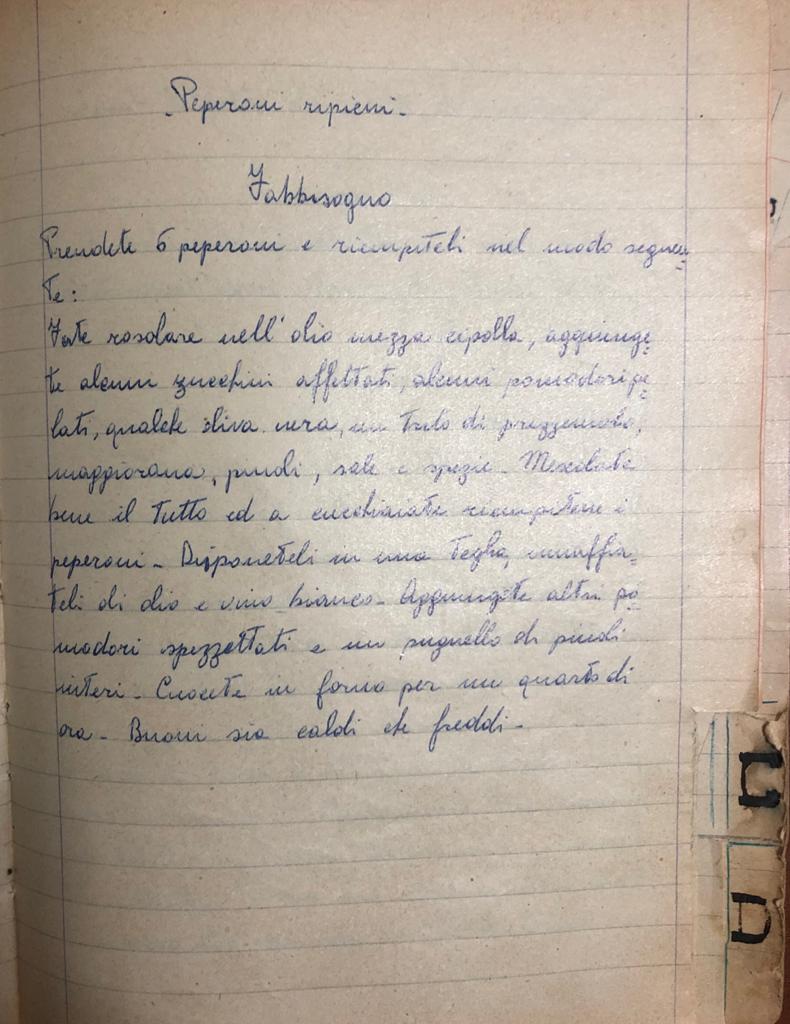 - Peperoni ripieni -
Fabbisogno
Prendete 6 peperoni e riempiteli nel modo seguen=
te:
Fate rosolare nell'olio mezza cipolla, aggiunge=
te alcuni zucchini affettati, alcuni pomodori pe=
lati, qualche oliva nera, un trito di prezzemolo,
maggiorana, pinoli, sale e spezie - Mescolate
bene il tutto ed a cucchiaiate riempitene i
peperoni - Disponeteli in una teglia, innaffia-
teli di olio e vino bianco - Aggiungete altri po
modori spezzettati e un pugnello di pinoli
interi - Cuocete in forno per un quarto di
ora - Buoni sia caldi che freddi -